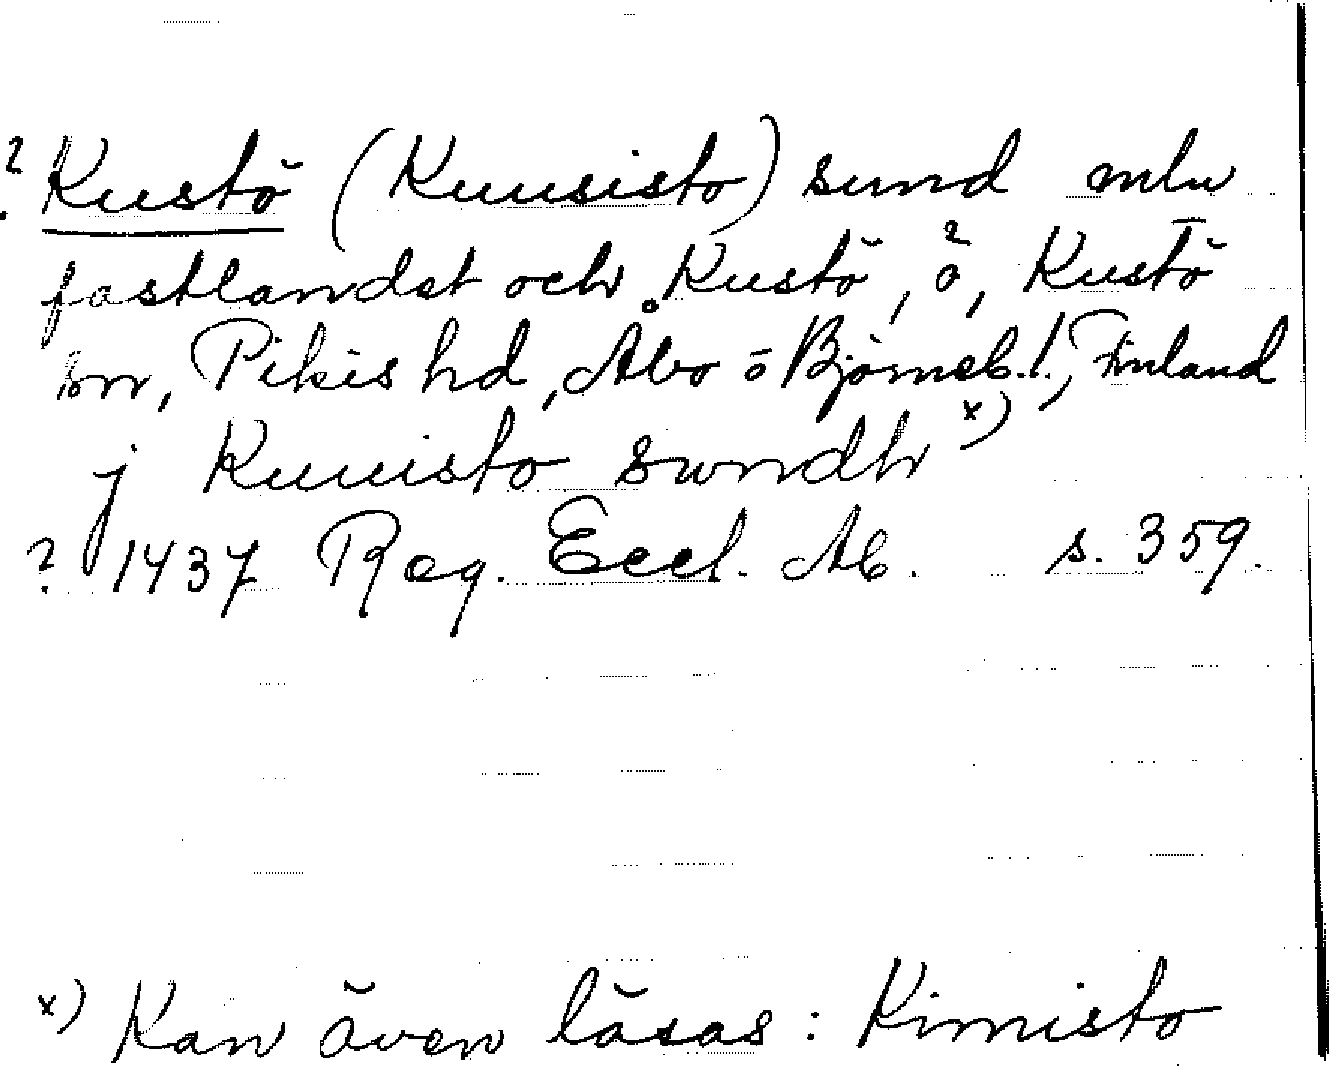 ? Kustö (Kuusisto) sund mln
fastlandet och Kustö, ö, Kustö
sn, Pikis hd, Åbo o Björneb. l., Finland
j Kuuisto swndh x)
? 1437 Reg. Eccl. Ab. s. 359.
x) Kan även läsas: Kimisto